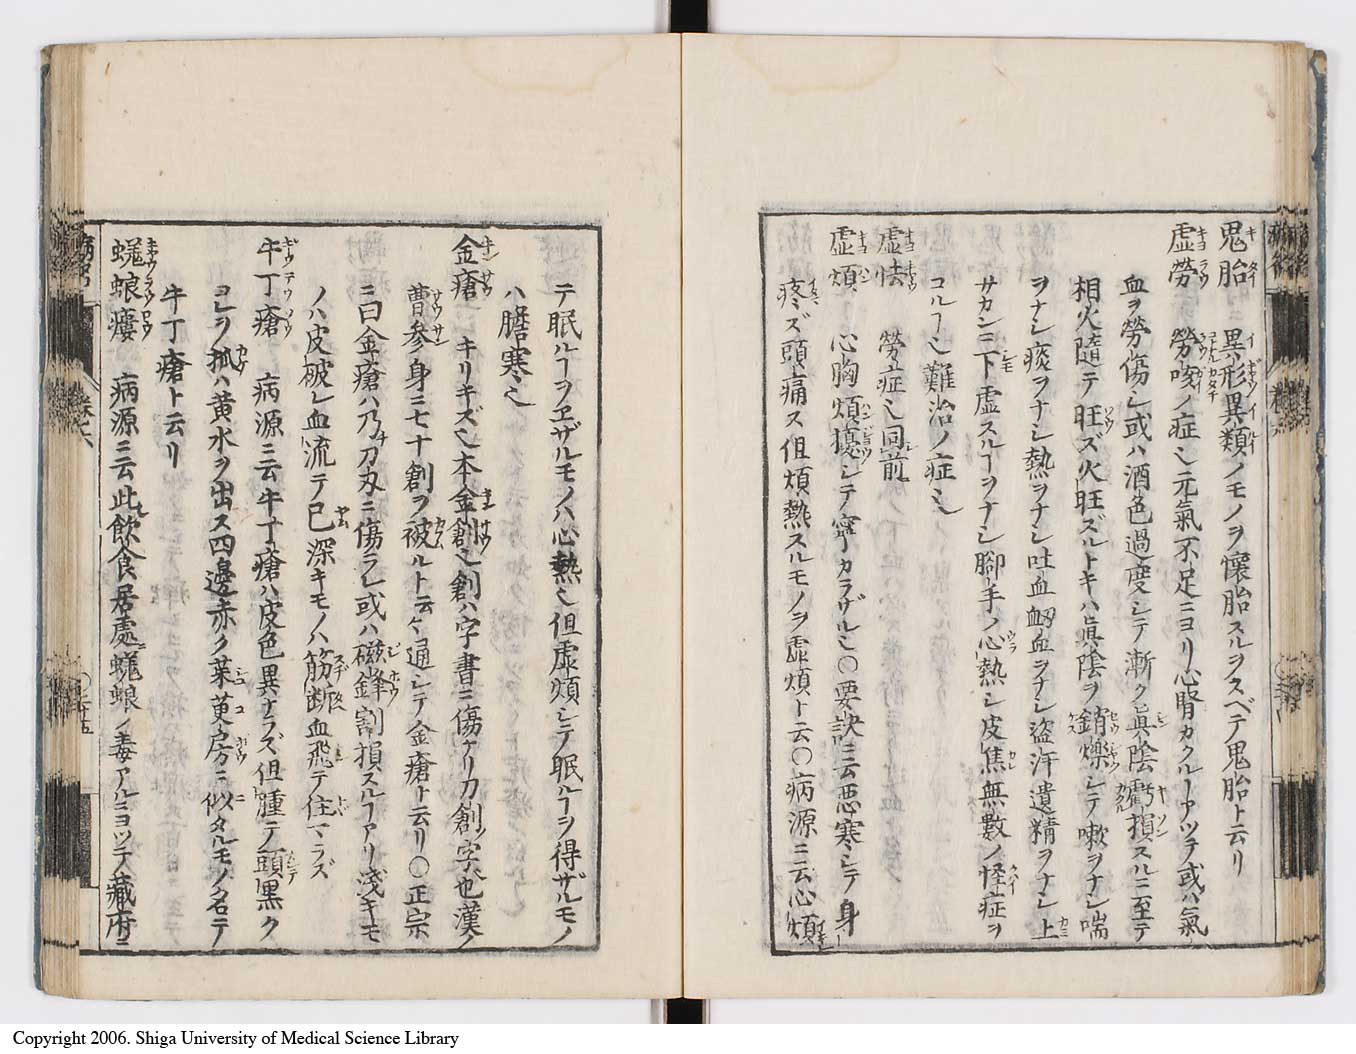 鬼胎 異形異類ノモノヲ懷胎スルヲスベテ鬼胎ト云リ
虚勞 勞咳ノ症乄元氣不足ニヨリ心腎カクルヿアツテ或ハ氣
血ヲ勞傷シ或ハ酒色過度シテ漸ク眞陰虧損スルニ至テ
相火隨テ旺ズ火旺ズルトキハ眞陰ヲ銷爍シテ嗽ヲナシ喘
ヲナシ痰ヲナシ熱ヲナシ吐血衂血ヲナシ盗汗遺精ヲナシ上
サカンニ下虚スルヿヲナシ脚手ノ心熱シ皮焦無數ノ怪症ヲ
コルヿ乄難治ノ症乄
虚怯 勞症乄同前
虚煩 心胸煩擾シテ寧カラザル乄〇要訣ニ云悪寒シテ身
疼ズ頭痛ス但煩熱スルモノヲ虚煩ト云〇病源ニ云心煩
テ眠ルヿヲヱザルモノハ心熱乄但虚煩シテ眠ルヿヲ得ザルモノ
ハ膽寒乄
金瘡 キリキズ乄本金創乄創ハ字書ニ傷ナリ刀創ノ字也漢ノ
曹参身ニ七十創ヲ被ルト云ヘ通シテ金瘡ト云リ〇正宗
ニ曰金瘡ハ乃刀刃ニ傷ラレ或ハ磁鋒割損スルヿアリ淺キモ
ノハ皮破レ血流テ已深キモノハ筋断血飛テ住マラズ
牛丁瘡 病源ニ云牛丁瘡ハ皮色異ナラズ但腫テ頭黒ク
コレヲ抓ハ黄水ヲ出ス四邊赤ク茱萸房ニ似タルモノ名テ
牛丁瘡ト云リ
蜣蜋瘻 病源ニ云此飲食居處蜣蜋ノ毒アルニヨツテ藏府ニ